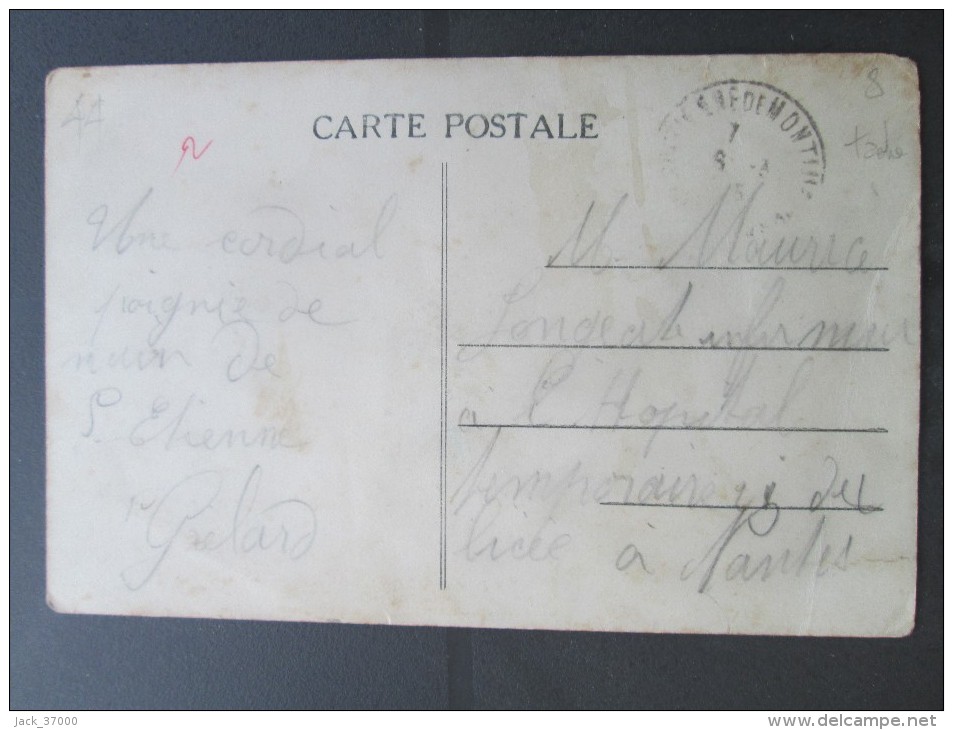 44
8
CARTE POSTALE
tache
Une cordial
poignie de
main de
S. Etienne
Gelard
M. Maurice
Longeat infirmier
à l'Hopital
temporaire du
licée à Nantes
jack_37000
http://www.delcampe.net